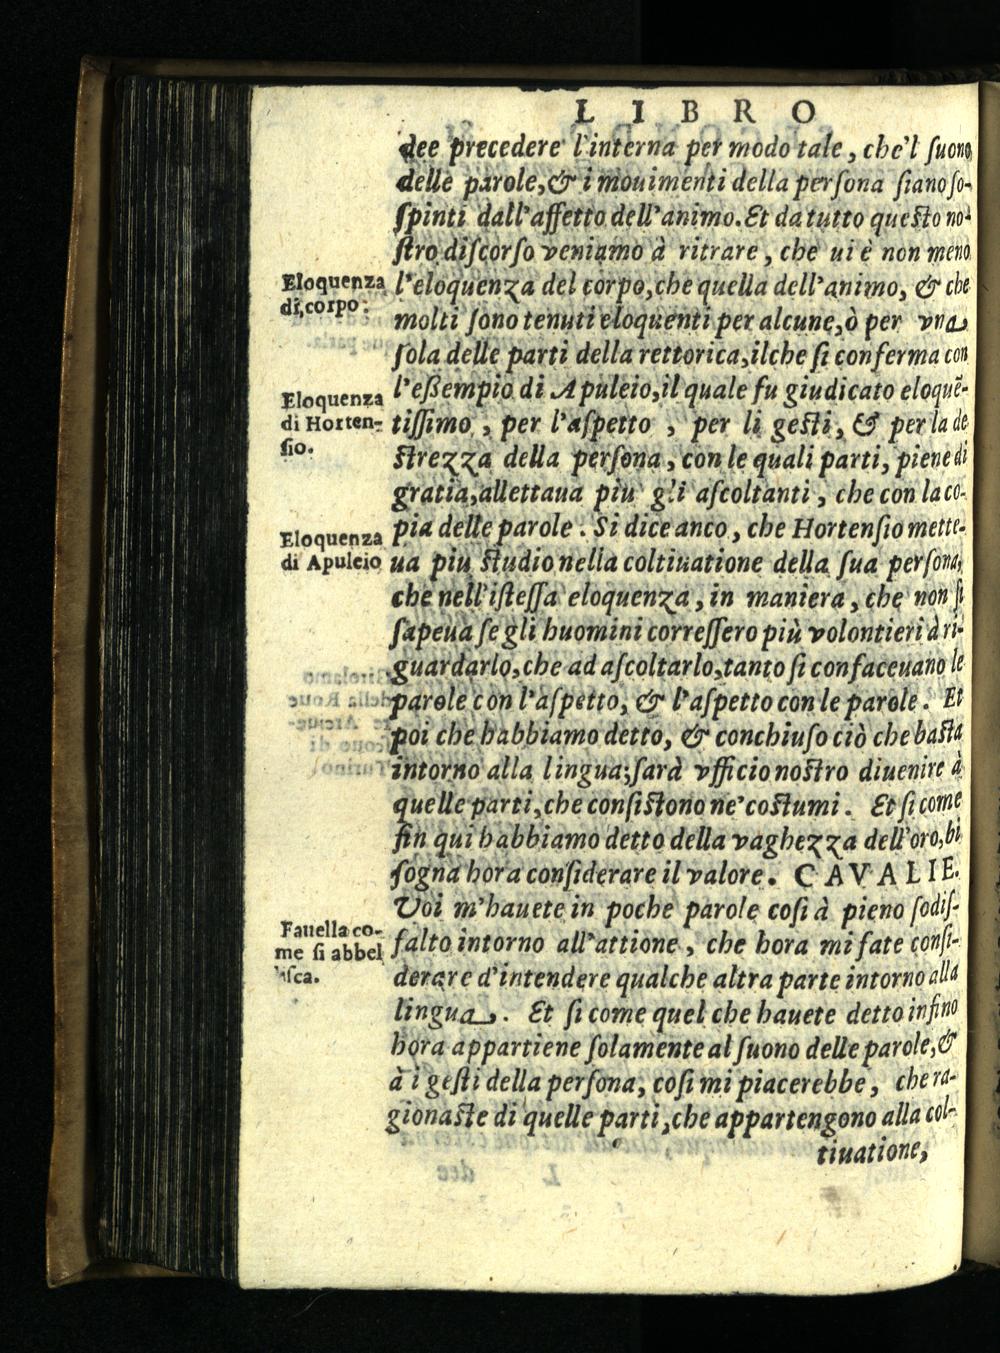 LIBRO
dee precedere l'interna per modo tale, che'l ſuono
delle parole, & i mouimenti della perſona ſiano ſo-
ſpinti dall'affetto dell'animo. Et da tutto queſto no-
ſtro diſcorſo veniamo à ritrare, che ui è non meno
Eloquenza
di corpo.
l'eloquenza del corpo, che quella dell'animo, & che
molti ſono tenuti eloquenti per alcune, ò per vna
ſola delle parti della rettorica, ilche ſi conferma con
Eloquenza
di Horten-
ſio.
l'eßempio di Apuleio, il quale fu giudicato eloquẽ-
tiſſimo, per l'aſpetto, per li geſti, & per la de
ſtrezza della perſona, con le quali parti, piene di
gratia, allettaua piu gli aſcoltanti, che con la co-
Eloquenza
di Apuleio
pia delle parole. Si dice anco, che Hortenſio mette-
ua piu ſtudio nella coltiuatione della ſua perſona,
che nell'iſteſſa eloquenza, in maniera, che non ſi
ſapeua ſe gli huomini correſſero più volontieri à ri-
guardarlo, che ad aſcoltarlo, tanto ſi confaceuano le
parole con l'aſpetto, & l'aſpetto con le parole. Et
poi che habbiamo detto, & conchiuſo ciò che baſta
intorno alla lingua; ſarà vfficio noſtro diuenire à
quelle parti, che conſiſtono ne' coſtumi. Et ſi come
fin qui habbiamo detto della vaghezza dell'oro, bi
ſogna hora conſiderare il valore. CAVALIE.
Voi m'hauete in poche parole coſi à pieno ſodiſ-
Fauella co-
me ſi abbel
liſca.
falto intorno all'attione, che hora mi fate conſi-
derare d'intendere qualche altra parte intorno alla
lingua. Et ſi come quel che hauete detto infino
hora appartiene ſolamente al ſuono delle parole, &
à i geſti della perſona, coſi mi piacerebbe, che ra-
gionaſte di quelle parti, che appartengono alla col-
tiuatione,